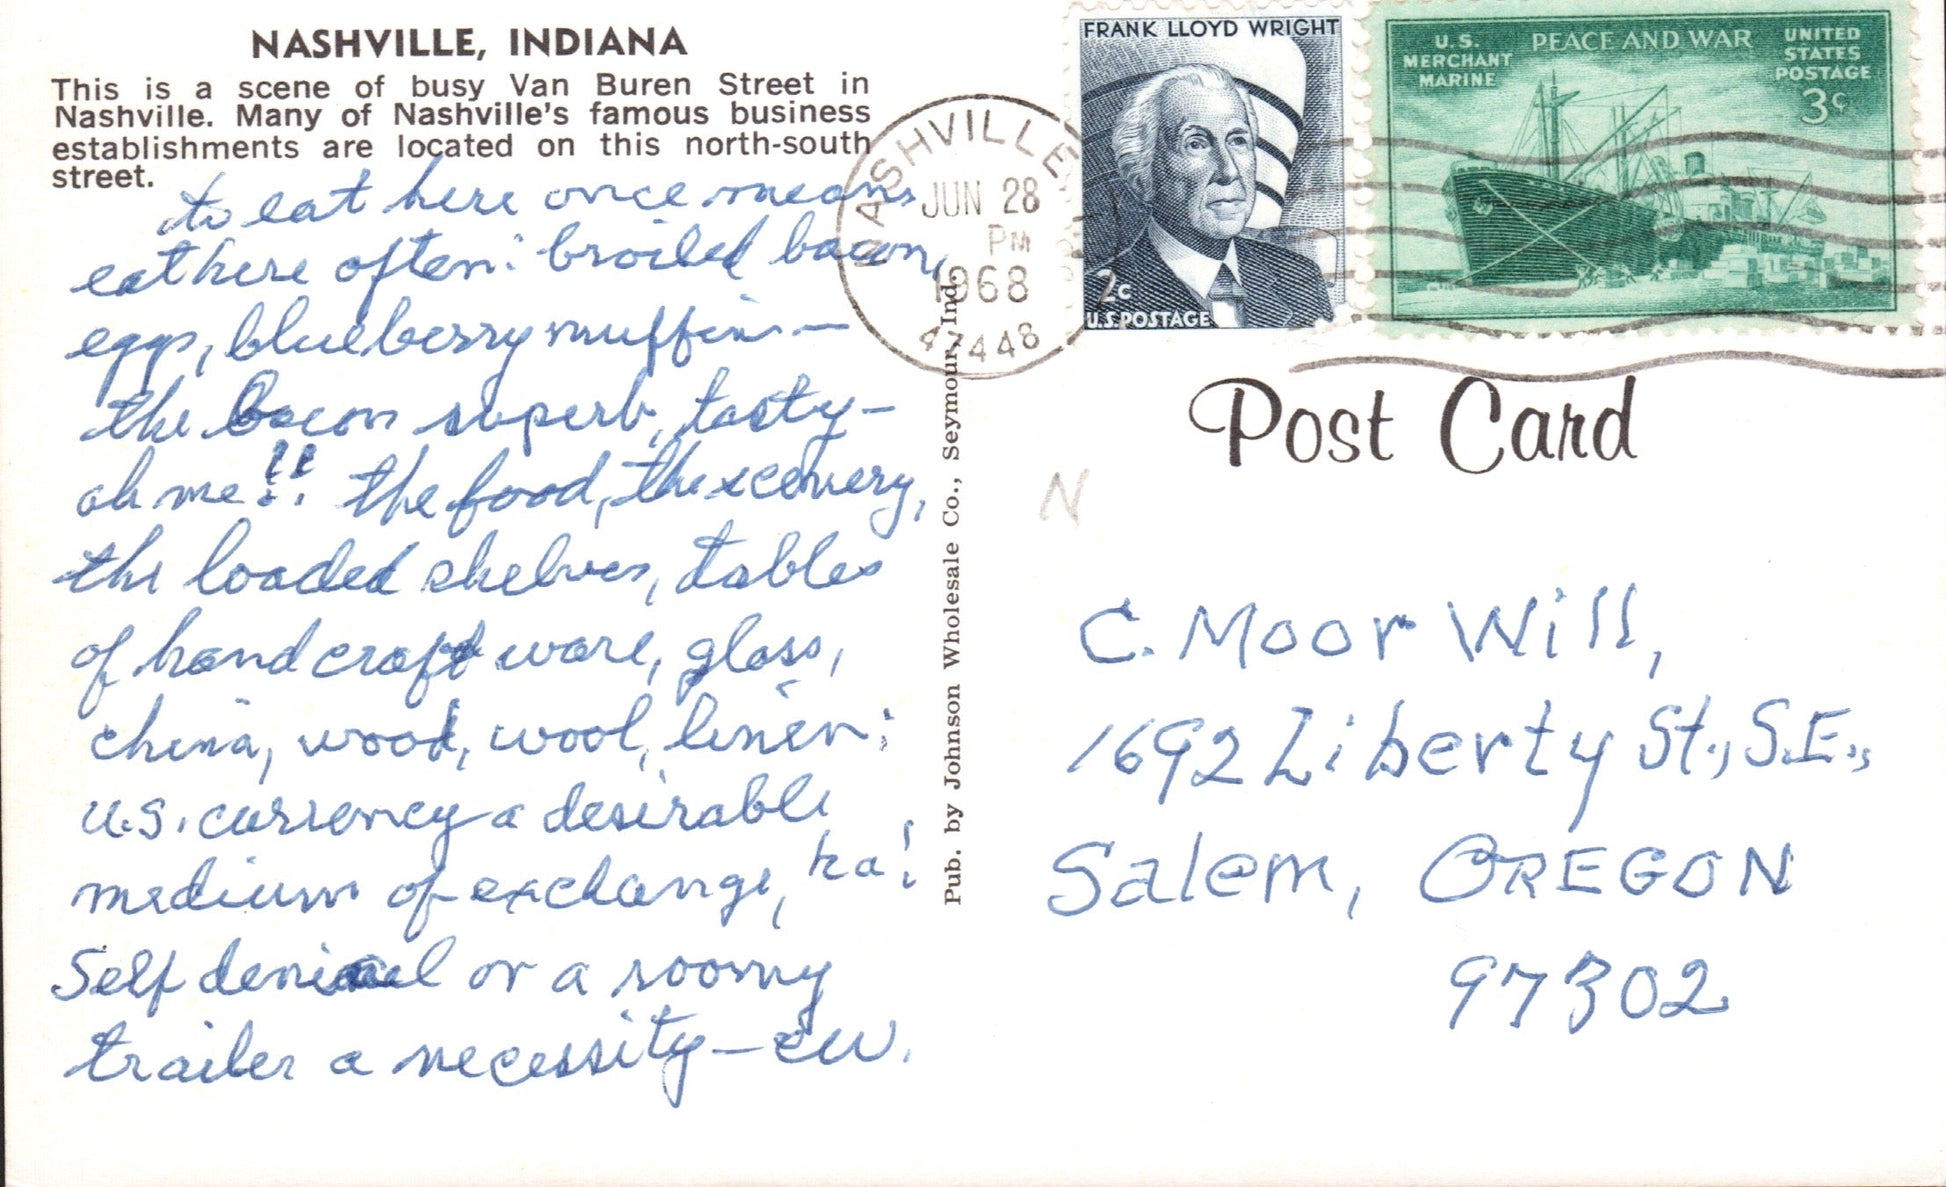 NASHVILLE, INDIANA
This is a scene of busy Van Buren Street in
Nashville. Many of Nashville's famous business
establishments are located on this north-south
street.
to eat here once means
eat here often: broiled bacon,
eggs, blueberry muffins—
the bacon superb, tasty—
ah me!! the food, the scenery,
the loaded shelves, tables
of handcraft ware, glass,
china, wood, wool, linen;
U.S. currency a desirable
medium of exchange, ha!
Self denial or a roomy
trailer a necessity—CW.
Pub. by Johnson Wholesale Co., Seymour, Ind.
NASHVILLE
JUN 28
PM
1968
47448
FRANK LLOYD WRIGHT
2c
U.S. POSTAGE
U.S.
MERCHANT
MARINE
PEACE AND WAR
UNITED
STATES
POSTAGE
3c
Post Card
N
C. Moor Will,
1692 Liberty St., S.E.,
Salem, OREGON
97302